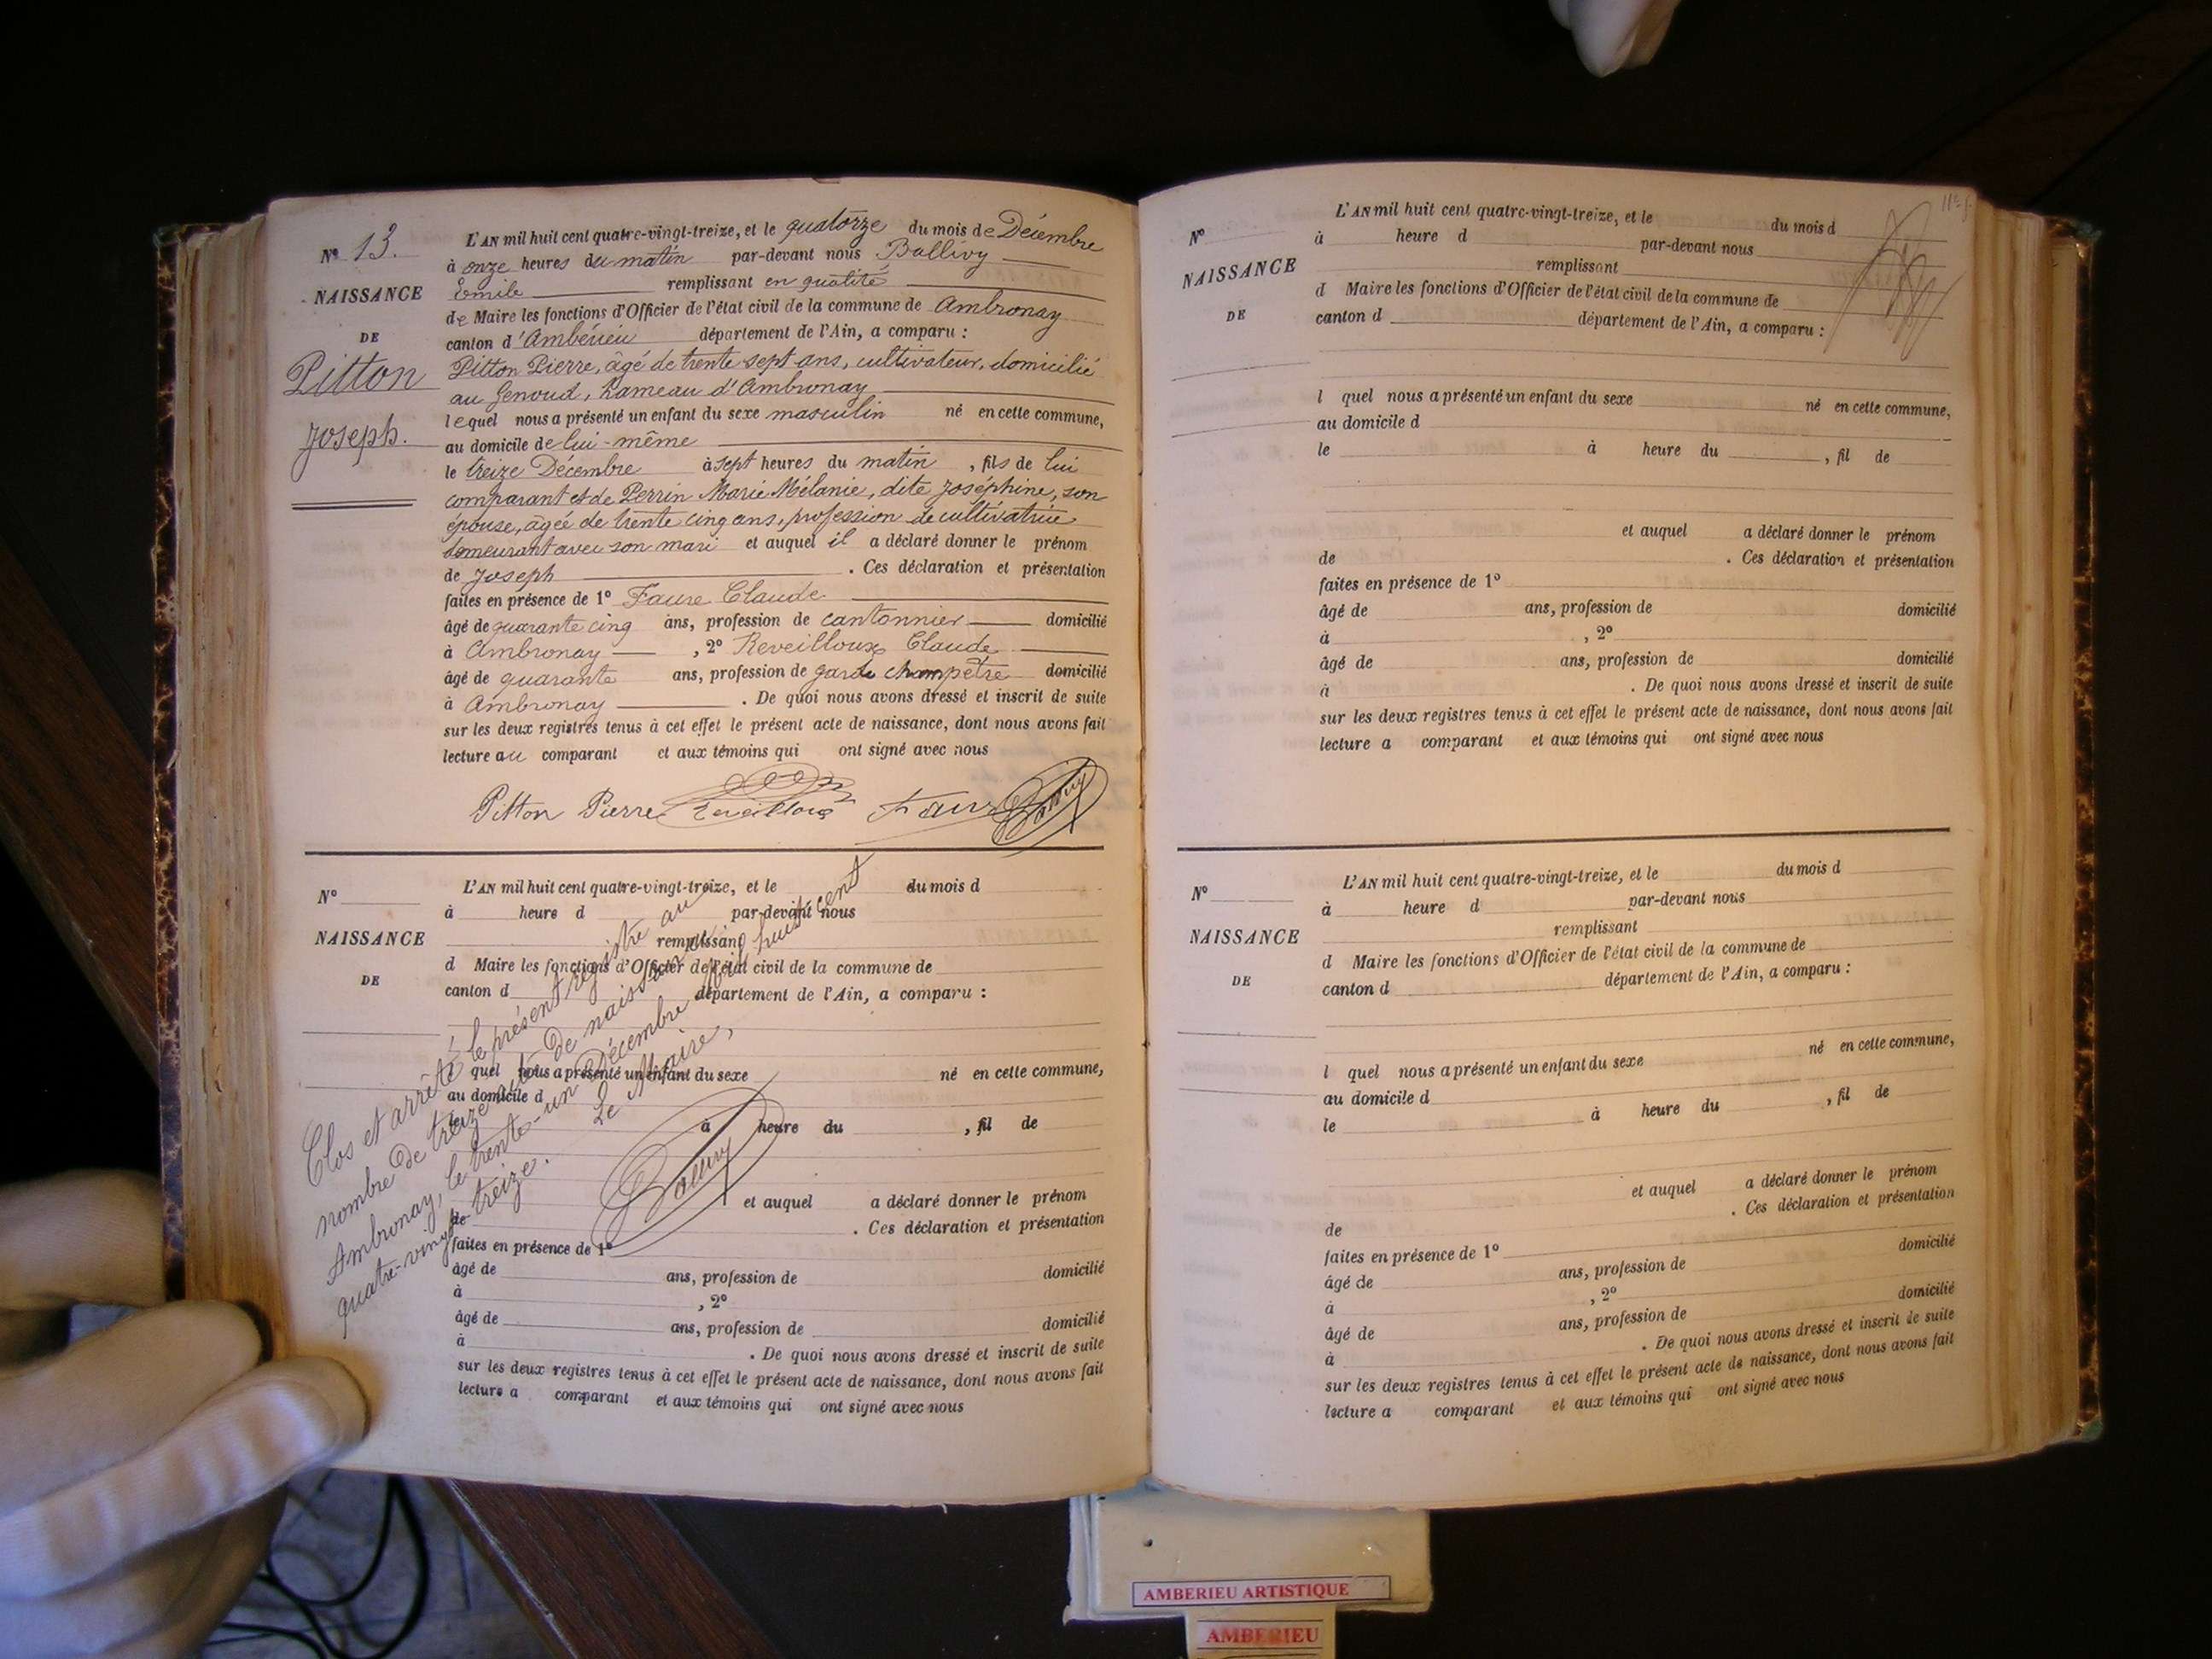 N° 13.
NAISSANCE
DE
Pitton
Joseph.
L'AN mil huit cent quatre-vingt-treize, et le quatorze du mois de Décembre
à onze heures du matin par-devant nous Ballivy
Emile remplissant en qualité
de Maire les fonctions d'Officier de l'état civil de la commune de Ambronay
canton d'Ambérieu département de l'Ain, a comparu :
Pitton Pierre, âgé de trente sept ans, cultivateur, domicilié
au Genoud, hameau d'Ambronay
lequel nous a présenté un enfant du sexe masculin né en cette commune,
au domicile de lui-même
le treize Décembre à sept heures du matin, fils de lui
comparant et de Perrin Marie Mélanie, dite Joséphine, son
épouse, âgée de trente cinq ans, profession de cultivatrice
demeurant avec son mari et auquel il a déclaré donner le prénom
de Joseph . Ces déclaration et présentation
faites en présence de 1° Faure Claude
âgé de quarante cinq ans, profession de cantonnier domicilié
à Ambronay , 2° Reveilloux Claude
âgé de quarante ans, profession de garde champêtre domicilié
à Ambronay . De quoi nous avons dressé et inscrit de suite
sur les deux registres tenus à cet effet le présent acte de naissance, dont nous avons fait
lecture au comparant et aux témoins qui ont signé avec nous
Pitton Pierre Reveilloux Faure Ballivy
N°
NAISSANCE
DE
L'AN mil huit cent quatre-vingt-treize, et le du mois d
à heure d par-devant nous
remplissant
d Maire les fonctions d'Officier de l'état civil de la commune de
canton d département de l'Ain, a comparu :
l quel nous a présenté un enfant du sexe né en cette commune,
au domicile d
le à heure du , fil de
et auquel a déclaré donner le prénom
de . Ces déclaration et présentation
faites en présence de 1°
âgé de ans, profession de domicilié
à , 2°
âgé de ans, profession de domicilié
à . De quoi nous avons dressé et inscrit de suite
sur les deux registres tenus à cet effet le présent acte de naissance, dont nous avons fait
lecture a comparant et aux témoins qui ont signé avec nous
Clos et arrêté le présent registre au
nombre de treize actes de naissance
Ambronay, le trente-un Décembre mil huit cent
quatre-vingt-treize.
Le Maire,
Ballivy
N°
NAISSANCE
DE
L'AN mil huit cent quatre-vingt-treize, et le du mois d
à heure d par-devant nous
remplissant
d Maire les fonctions d'Officier de l'état civil de la commune de
canton d département de l'Ain, a comparu :
l quel nous a présenté un enfant du sexe né en cette commune,
au domicile d
le à heure du , fil de
et auquel a déclaré donner le prénom
de . Ces déclaration et présentation
faites en présence de 1°
âgé de ans, profession de domicilié
à , 2°
âgé de ans, profession de domicilié
à . De quoi nous avons dressé et inscrit de suite
sur les deux registres tenus à cet effet le présent acte de naissance, dont nous avons fait
lecture a comparant et aux témoins qui ont signé avec nous
N°
NAISSANCE
DE
L'AN mil huit cent quatre-vingt-treize, et le du mois d
à heure d par-devant nous
remplissant
d Maire les fonctions d'Officier de l'état civil de la commune de
canton d département de l'Ain, a comparu :
l quel nous a présenté un enfant du sexe né en cette commune,
au domicile d
le à heure du , fil de
et auquel a déclaré donner le prénom
de . Ces déclaration et présentation
faites en présence de 1°
âgé de ans, profession de domicilié
à , 2°
âgé de ans, profession de domicilié
à . De quoi nous avons dressé et inscrit de suite
sur les deux registres tenus à cet effet le présent acte de naissance, dont nous avons fait
lecture a comparant et aux témoins qui ont signé avec nous
AMBERIEU ARTISTIQUE
AMBERIEU